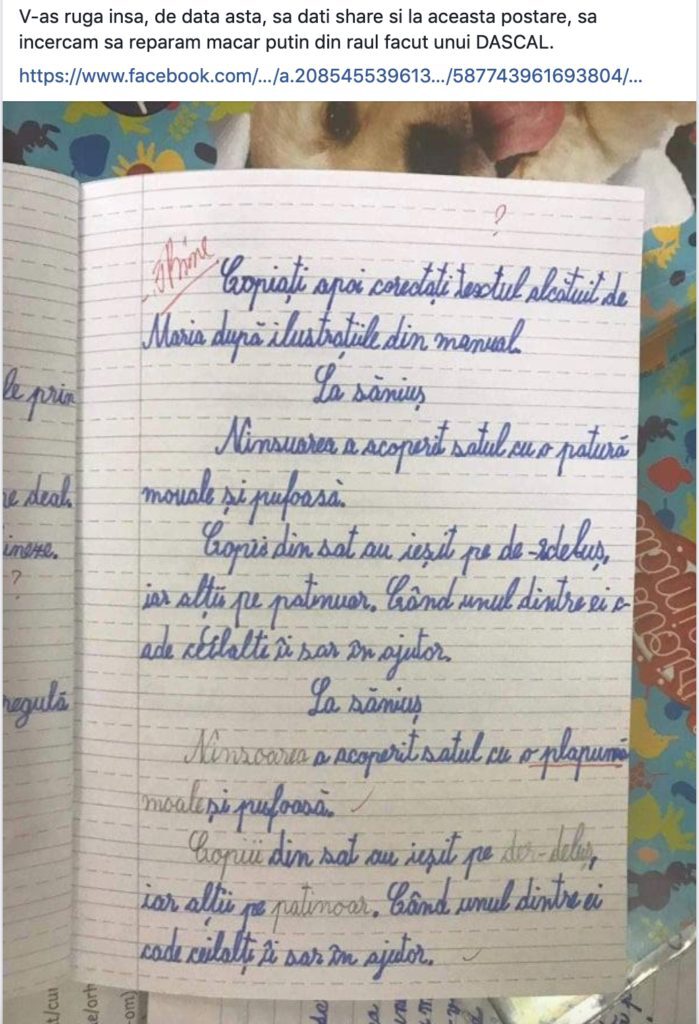 V-as ruga insa, de data asta, sa dati share si la aceasta postare, sa
incercam sa reparam macar putin din raul facut unui DASCAL.
https://www.facebook.com/.../a.208545539613.../587743961693804/...
?
Copiați apoi corectați textul alcătuit de
Maria după ilustrațiile din manual.
La săniuș
Ninsuarea a acoperit satul cu o patură
mouale și pufoasă.
Copii din sat au ieșit pe de-rdeluș,
iar alții pe patinuar. Când unul dintre ei c-
ade ceilalți îi sar în ajutor.
La săniuș
Ninsoarea a acoperit satul cu o plapumă
moale și pufoasă.
Copiii din sat au ieșit pe der-deluș,
iar alții pe patinoar. Când unul dintre ei
cade ceilalți îi sar în ajutor.
le prin
e deal.
?
regulă